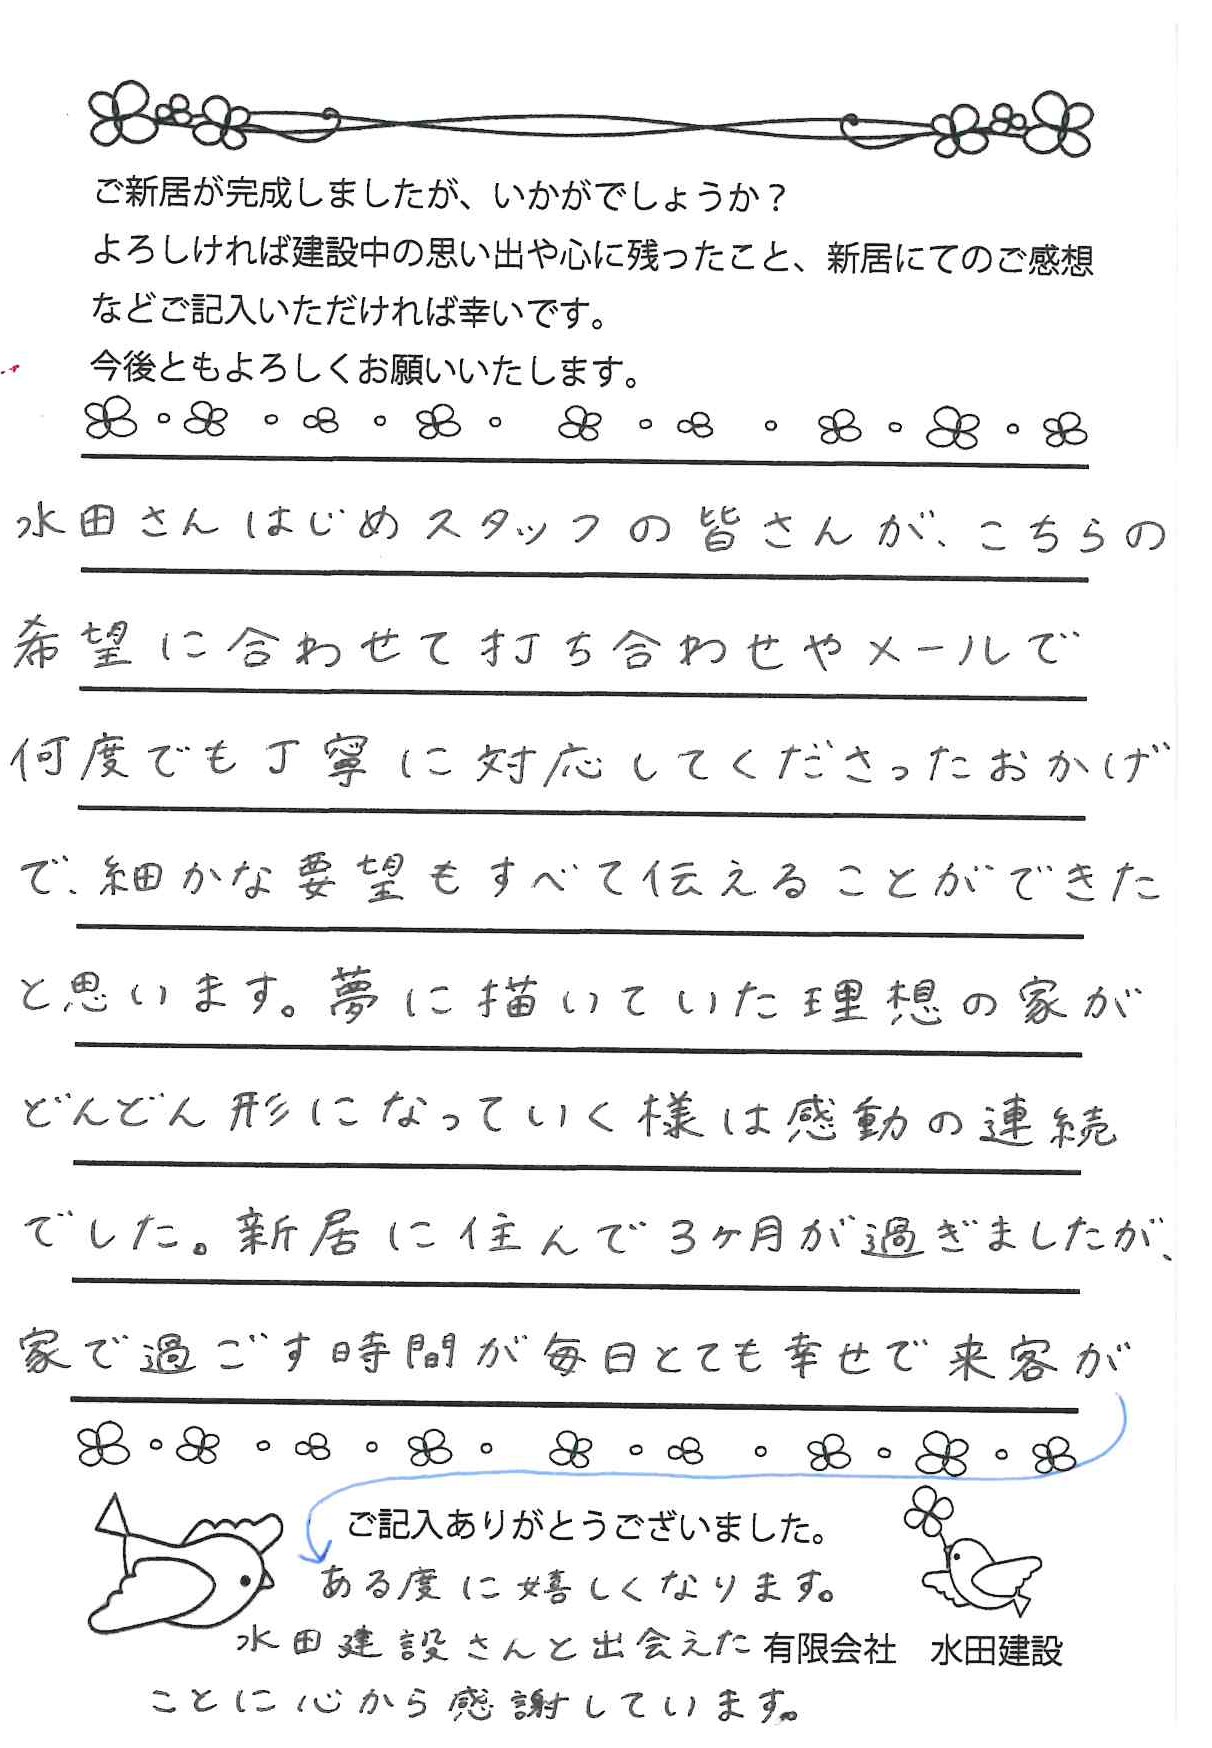 ご新居が完成しましたが、いかがでしょうか？
よろしければ建設中の思い出や心に残ったこと、新居にてのご感想
などご記入いただければ幸いです。
今後ともよろしくお願いいたします。
水田さんはじめスタッフの皆さんが、こちらの
希望に合わせて打ち合わせやメールで
何度でも丁寧に対応してくださったおかげ
で、細かな要望もすべて伝えることができた
と思います。夢に描いていた理想の家が
どんどん形になっていく様は感動の連続
でした。新居に住んで3ヶ月が過ぎましたが、
家で過ごす時間が毎日とても幸せで来客が
ご記入ありがとうございました。
ある度に嬉しくなります。
水田建設さんと出会えた
有限会社　水田建設
ことに心から感謝しています。